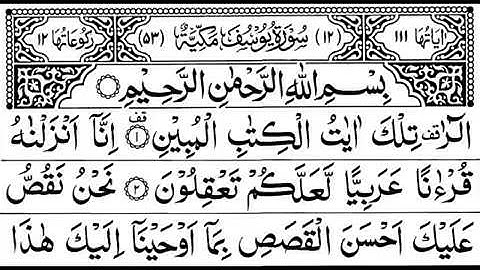 اٰيَاتُهَا ١١١ (١٢) سُوْرَةُ يُوْسُفَ مَكِّيَّةٌ (٥٣) رُكُوْعَاتُهَا ١٢
بِسْمِ اللّٰهِ الرَّحْمٰنِ الرَّحِيْمِ
الٓرٰ قف تِلْكَ اٰيٰتُ الْكِتٰبِ الْمُبِيْنِ قف ١ اِنَّاۤ اَنْزَلْنٰهُ
قُرْءٰنًا عَرَبِيًّا لَّعَلَّكُمْ تَعْقِلُوْنَ ٢ نَحْنُ نَقُصُّ
عَلَيْكَ اَحْسَنَ الْقَصَصِ بِمَاۤ اَوْحَيْنَاۤ اِلَيْكَ هٰذَا